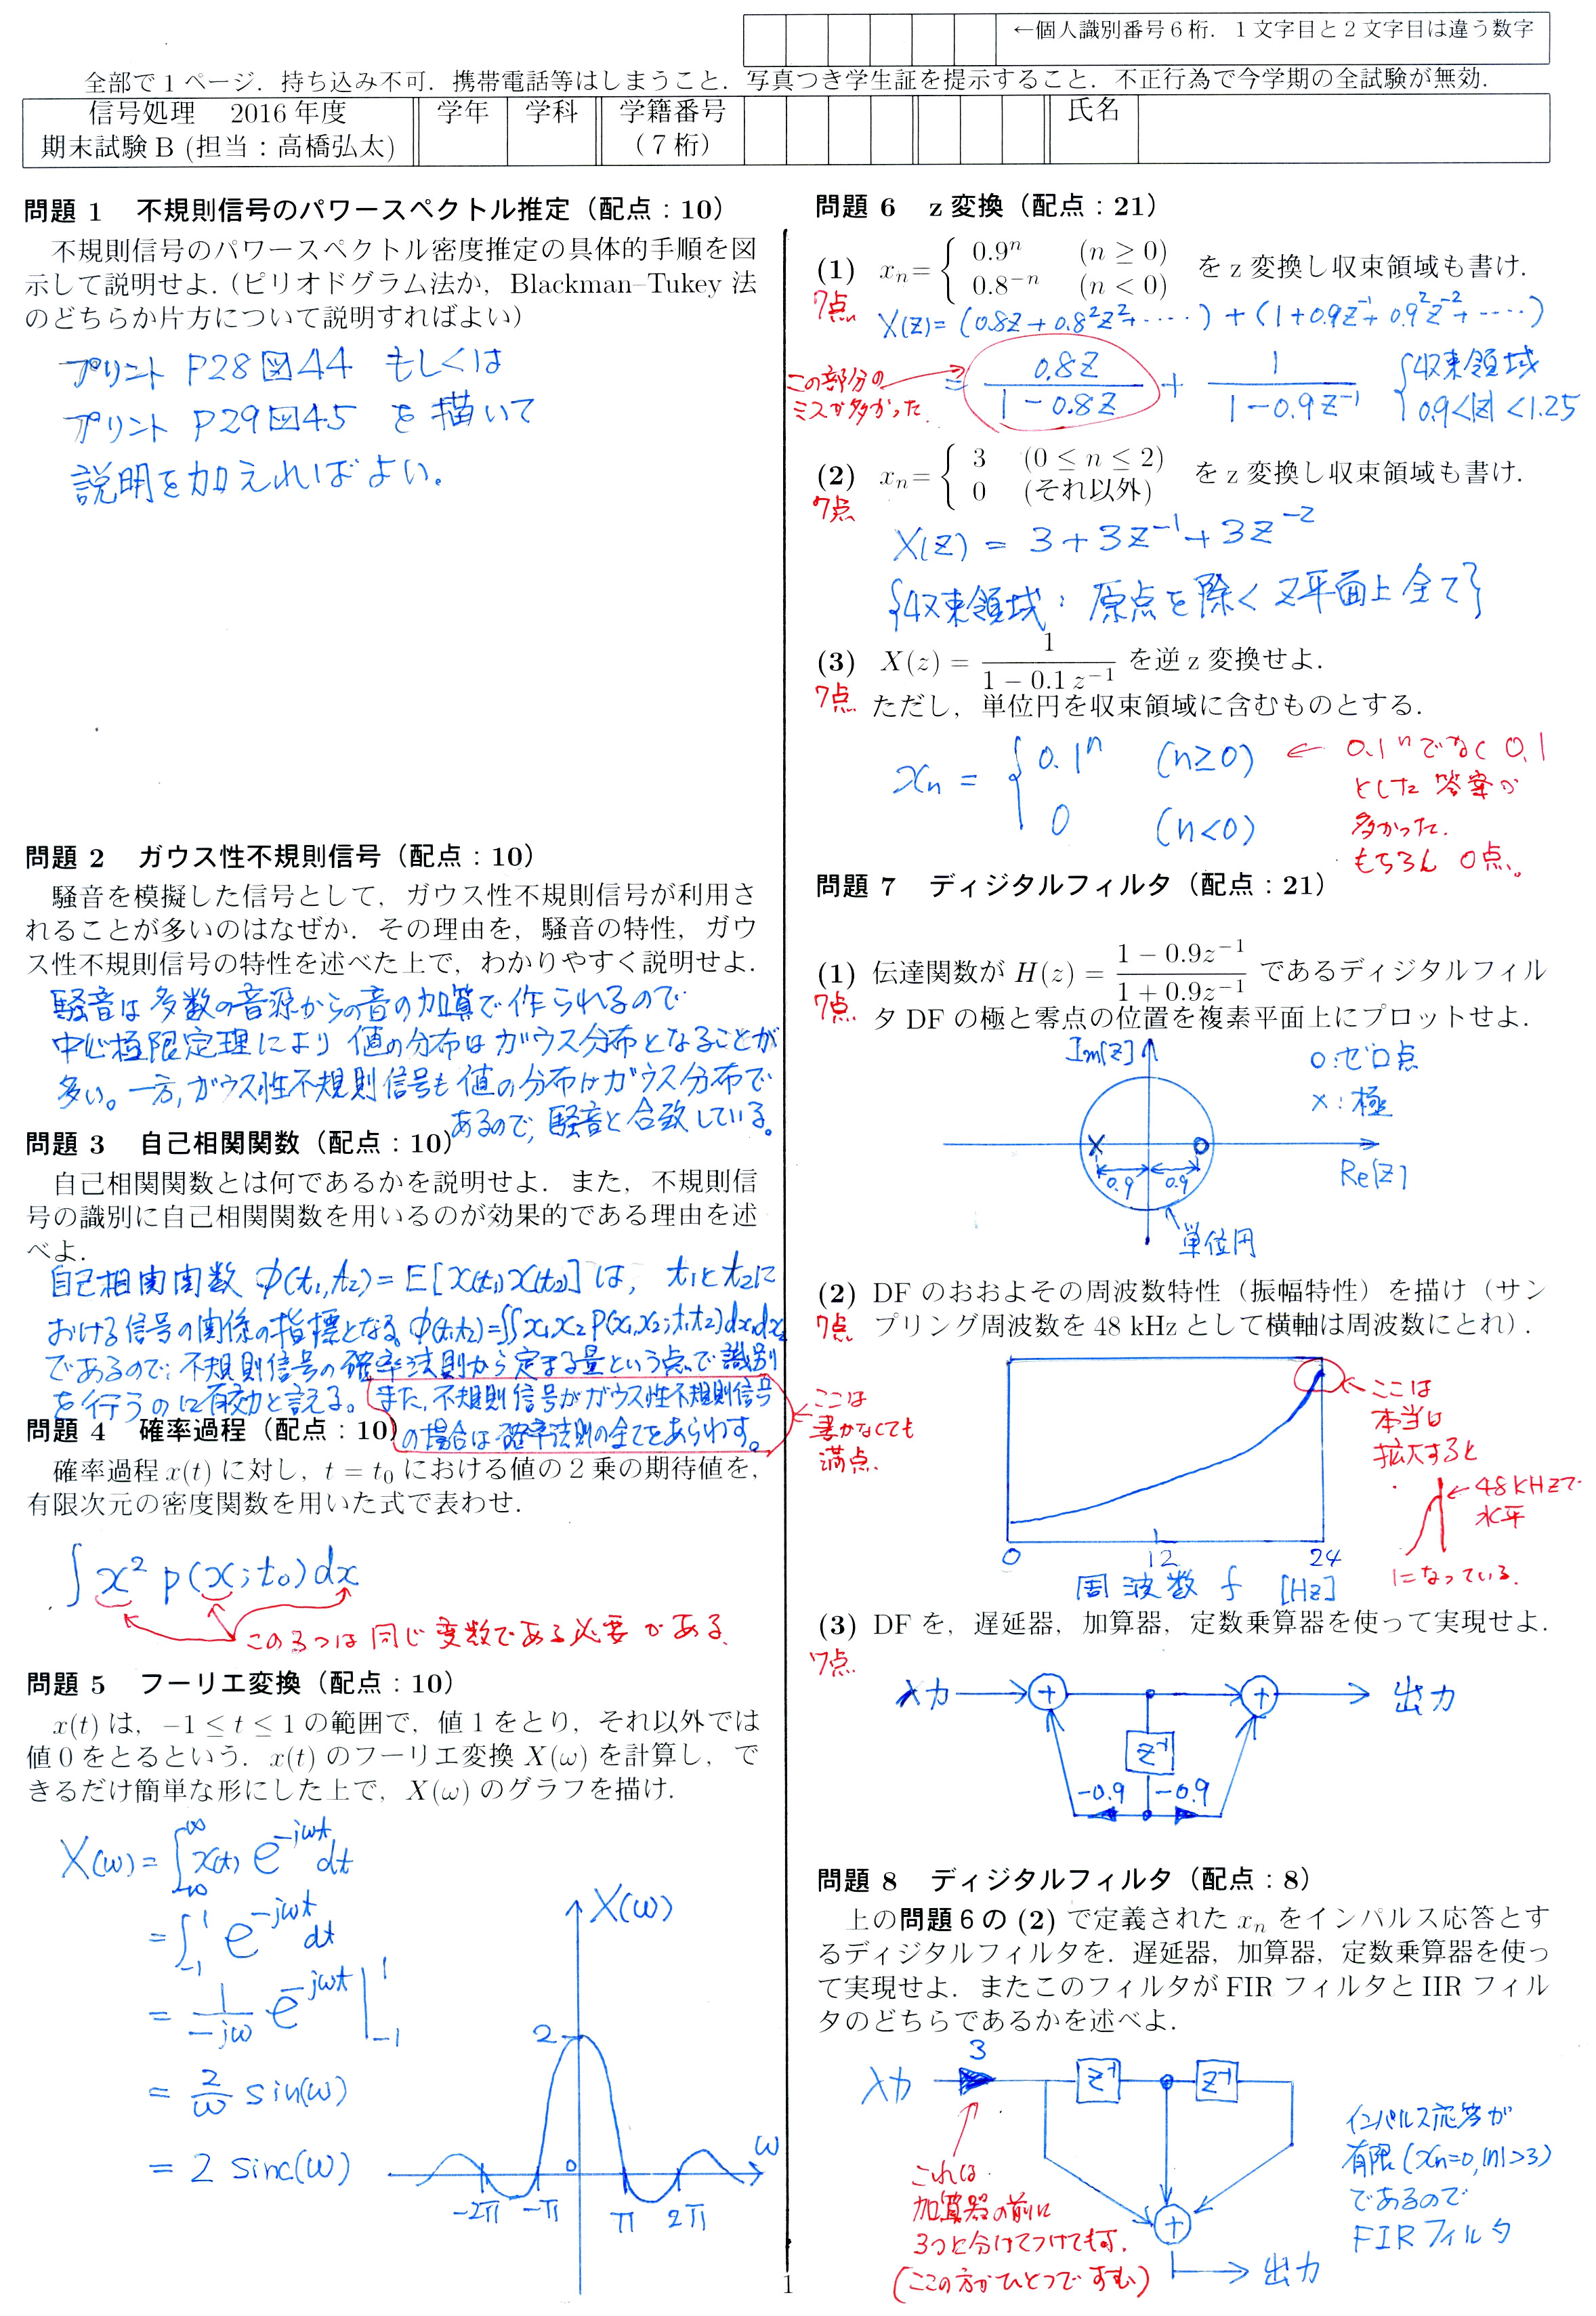 ←個人識別番号6桁．1文字目と2文字目は違う数字
全部で1ページ．持ち込み不可．携帯電話等はしまうこと．写真つき学生証を提示すること．不正行為で今学期の全試験が無効．
信号処理 2016年度
期末試験B (担当：高橋弘太)
学年 学科 学籍番号
（7桁）
氏名
問題 1 不規則信号のパワースペクトル推定（配点：10）
不規則信号のパワースペクトル密度推定の具体的手順を図
示して説明せよ．（ピリオドグラム法か，Blackman–Tukey 法
のどちらか片方について説明すればよい）
プリント P28図44 もしくは
プリント P29図45 を描いて
説明を加えればよい。
問題 2 ガウス性不規則信号（配点：10）
騒音を模擬した信号として，ガウス性不規則信号が利用さ
れることが多いのはなぜか．その理由を，騒音の特性，ガウ
ス性不規則信号の特性を述べた上で，わかりやすく説明せよ．
騒音は多数の音源からの音の加算で作られるので
中心極限定理により 値の分布はガウス分布となることが
多い。一方,ガウス性不規則信号も値の分布はガウス分布で
あるので, 騒音と合致している。
問題 3 自己相関関数（配点：10）
自己相関関数とは何であるかを説明せよ．また，不規則信
号の識別に自己相関関数を用いるのが効果的である理由を述
べよ．
自己相関関数 φ(t₁,t₂)= E[x(t₁)x(t₂)] は, t₁とt₂に
おける信号の関係の指標となる。φ(t₁,t₂)=∬x₁x₂p(x₁,x₂;t₁,t₂)dx₁dx₂
であるので, 不規則信号の確率法則から定まる量という点で識別
を行うのに有効と言える。また,不規則信号がガウス性不規則信号
の場合は確率法則の全てをあらわす。
ここは
書かなくても
満点.
問題 4 確率過程（配点：10）
確率過程 x(t) に対し，t = t₀ における値の2乗の期待値を，
有限次元の密度関数を用いた式で表わせ．
∫ x² p(x;t₀)dx
この3つは同じ変数である必要がある.
問題 5 フーリエ変換（配点：10）
x(t) は，−1 ≤ t ≤ 1 の範囲で，値1をとり，それ以外では
値0をとるという．x(t) のフーリエ変換 X(ω) を計算し，で
きるだけ簡単な形にした上で，X(ω) のグラフを描け．
X(ω) = ∫_{-∞}^{∞} x(t) e^{-jωt} dt
= ∫_{-1}^{1} e^{-jωt} dt
= 1/(-jω) e^{-jωt} |_{-1}^{1}
= 2/ω sin(ω)
= 2 sinc(ω)
X(ω)
2
0
ω
-2π -π π 2π
問題 6 z変換（配点：21）
(1) xₙ= { 0.9ⁿ (n ≥ 0)
0.8⁻ⁿ (n < 0) をz変換し収束領域も書け．
7点
X(z)= (0.8z+0.8²z²+‥‥) + (1+0.9z⁻¹+0.9²z⁻²+‥‥)
= 0.8z/(1−0.8z) + 1/(1−0.9z⁻¹) {収束領域
0.9<|z|<1.25
この部分の
ミスが多かった.
(2) xₙ= { 3 (0 ≤ n ≤ 2)
0 (それ以外) をz変換し収束領域も書け．
7点
X(z) = 3+3z⁻¹+3z⁻²
{収束領域：原点を除くz平面上全て}
(3) X(z) = 1/(1 − 0.1 z⁻¹) を逆z変換せよ．
7点 ただし，単位円を収束領域に含むものとする．
xₙ = { 0.1ⁿ (n≥0)
0 (n<0)
← 0.1ⁿでなく0.1
とした答案が
多かった.
もちろん 0点。
問題 7 ディジタルフィルタ（配点：21）
(1) 伝達関数が H(z) = (1 − 0.9z⁻¹)/(1 + 0.9z⁻¹) であるディジタルフィル
7点 タDFの極と零点の位置を複素平面上にプロットせよ．
Im[z]
○:ゼロ点
×:極
0.9 0.9
Re[z]
単位円
(2) DFのおおよその周波数特性（振幅特性）を描け（サン
7点 プリング周波数を48 kHzとして横軸は周波数にとれ）．
0 12 24
周波数 f [Hz]
ここは
本当は
拡大すると
←48kHzで
水平
になっている.
(3) DFを，遅延器，加算器，定数乗算器を使って実現せよ．
7点
入力 + + 出力
z⁻¹
-0.9 -0.9
問題 8 ディジタルフィルタ（配点：8）
上の問題6の (2) で定義された xₙ をインパルス応答とす
るディジタルフィルタを．遅延器，加算器，定数乗算器を使っ
て実現せよ．またこのフィルタがFIRフィルタとIIRフィル
タのどちらであるかを述べよ．
3
入力 z⁻¹ z⁻¹
+
出力
これは
加算器の前に
3つと分けてつけても可.
(ここの方がひとつですむ)
インパルス応答が
有限(xₙ=0,|n|>3)
であるので
FIRフィルタ
1